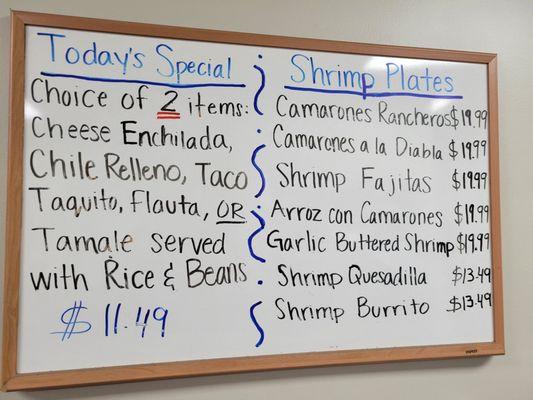 Today's Special
Choice of 2 items:
Cheese Enchilada,
Chile Relleno, Taco
Taquito, Flauta, OR
Tamale served
with Rice & Beans
$11.49
Shrimp Plates
Camarones Rancheros $19.99
Camarones a la Diabla $19.99
Shrimp Fajitas $19.99
Arroz con Camarones $19.99
Garlic Buttered Shrimp $19.99
Shrimp Quesadilla $13.49
Shrimp Burrito $13.49